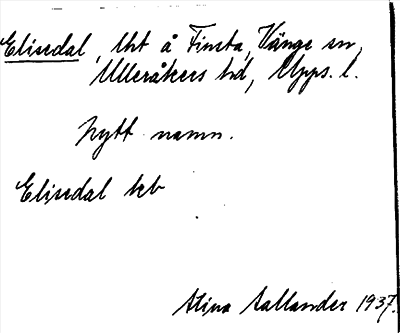 Elisedal, lht å Finsta, Vänge sn,
Ulleråkers hd, Upps. l.
Nytt namn.
Elisedal kb
Stina Sallander 1937.